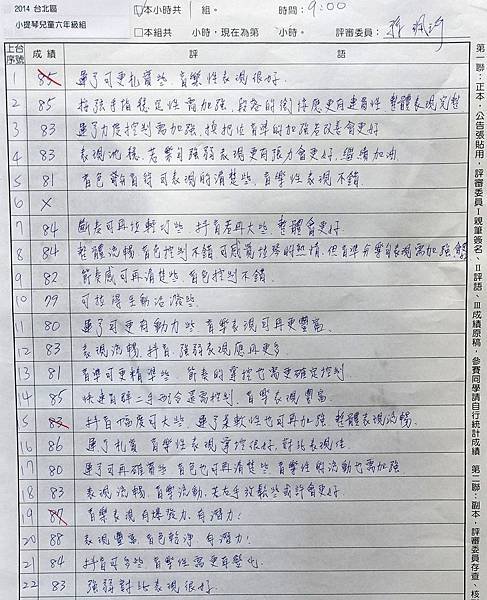 2014 台北區
小提琴兒童六年級組
本小時共 1 組。 時間：9:00
本組共 小時，現在為第 小時。 評審委員：
上台序號 成績 評語
1 85 運弓可更紮實些，音樂性表現很好．
2 85 按弦手指穩定性需加強，段落的銜接應更用連貫性 整體表現完整
3 83 運弓力度控制需加強，換把位音準的加強 會更好
4 83 表現沈穩，若樂句強弱表現更有張力會更好，繼續加油
5 81 音色 可表現的清楚些，音樂性表現不錯．
6 X
7 84 斷奏可再放輕巧些，抖音若再大些 整體會更好
8 84 整體流暢 音色控制不錯 可感覺拉琴的熱情，但音準 需加強
9 82 節奏感可再清楚些，音色控制不錯．
10 79 可拉得生動活潑些．
11 80 運弓可更有動力些 音樂表現可再更豐富．
12 83 表現流暢，抖音，強弱表現應再更多．
13 81 音準可更精準些，節奏的掌控也需更確定控制
14 85 快速音群左手配合是需控制，音樂表現豐富．
15 83 抖音幅度可大些，運弓柔軟性也可再加強 整體表現流暢．
16 86 運弓紮實，音樂性表現掌控很好，對比表現佳
17 80 運弓可再確實些 音色也可再清楚些 音樂性的流動也需加強
18 83 表現流暢，音樂流動，左右手放鬆些或許會更好
19 87 音樂表現有爆發力，有潛力！
20 88 表現豐富 音色乾淨，有潛力！
21 84 抖音可多些 音樂性需更有
22 83 強弱對比表現很好．
第一聯：正本，公告張貼用，評審委員Ⅰ親筆簽名、Ⅱ評語、Ⅲ成績原稿，參賽同學請自行統計成績 第二聯：副本，評審委員存查、核